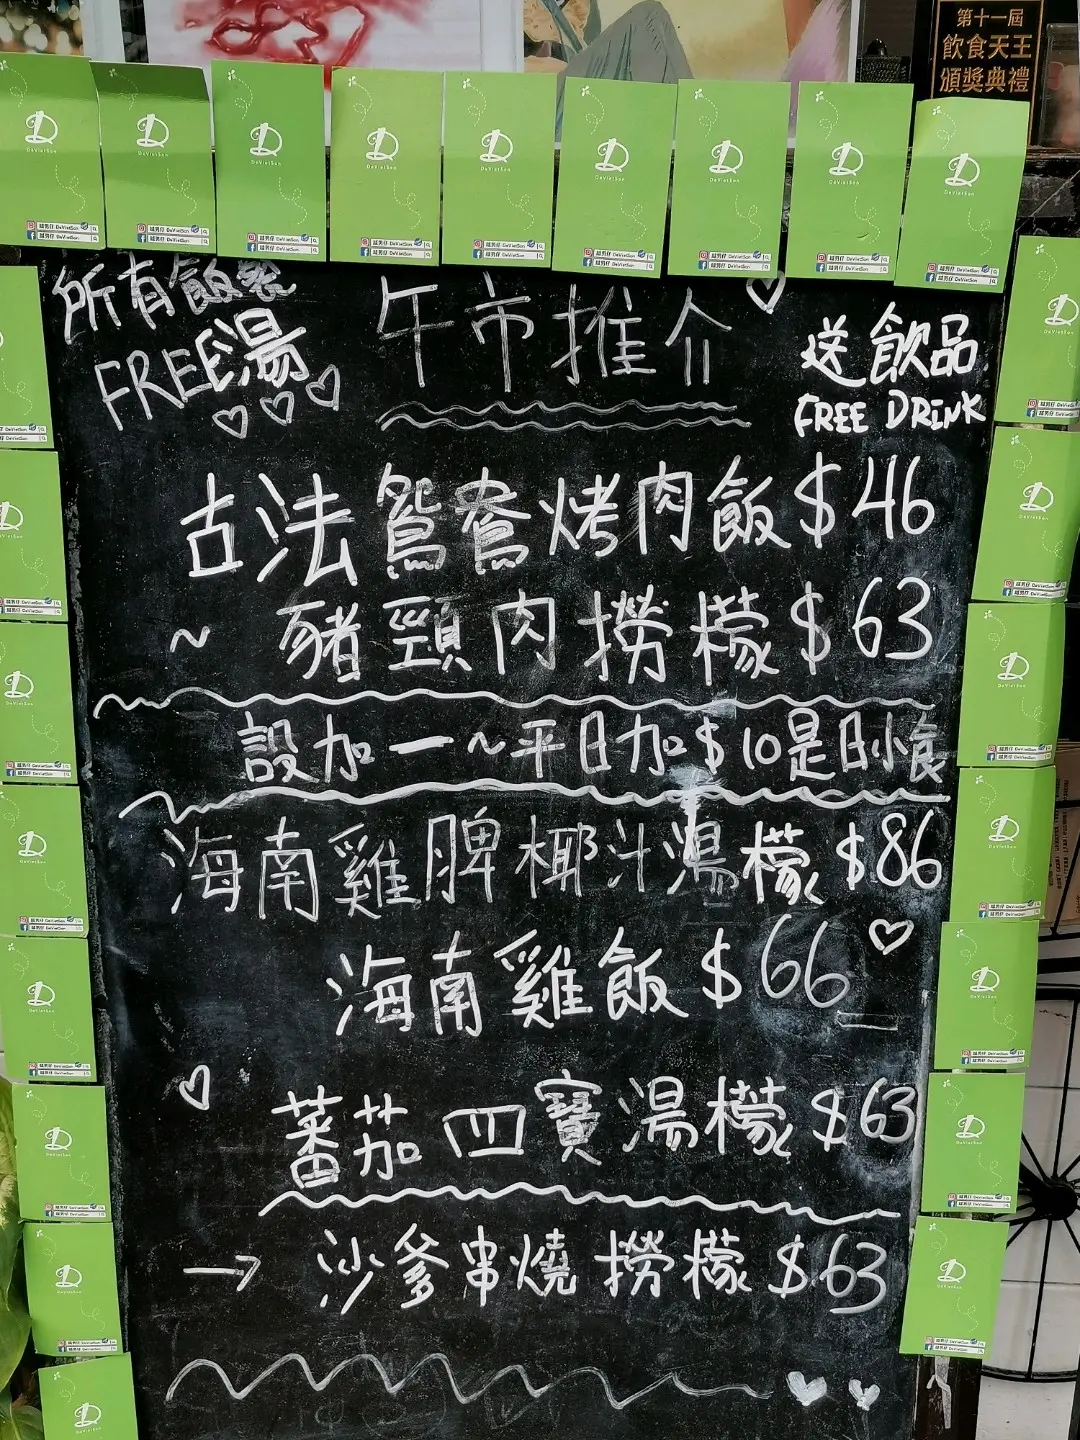 第十一屆
飲食天王
頒獎典禮
所有飯餐
FREE湯
午市推介
送飲品
FREE DRINK
古法鴛鴦烤肉飯$46
~ 豬頸肉撈檬$63
設加一~平日加$10是日小食
海南雞脾椰汁湯檬$86
海南雞飯$66
蕃茄四寶湯檬$63
→ 沙爹串燒撈檬$63
D
DeVietSon
越男仔 DeVietSon
越男仔 DeVietSon